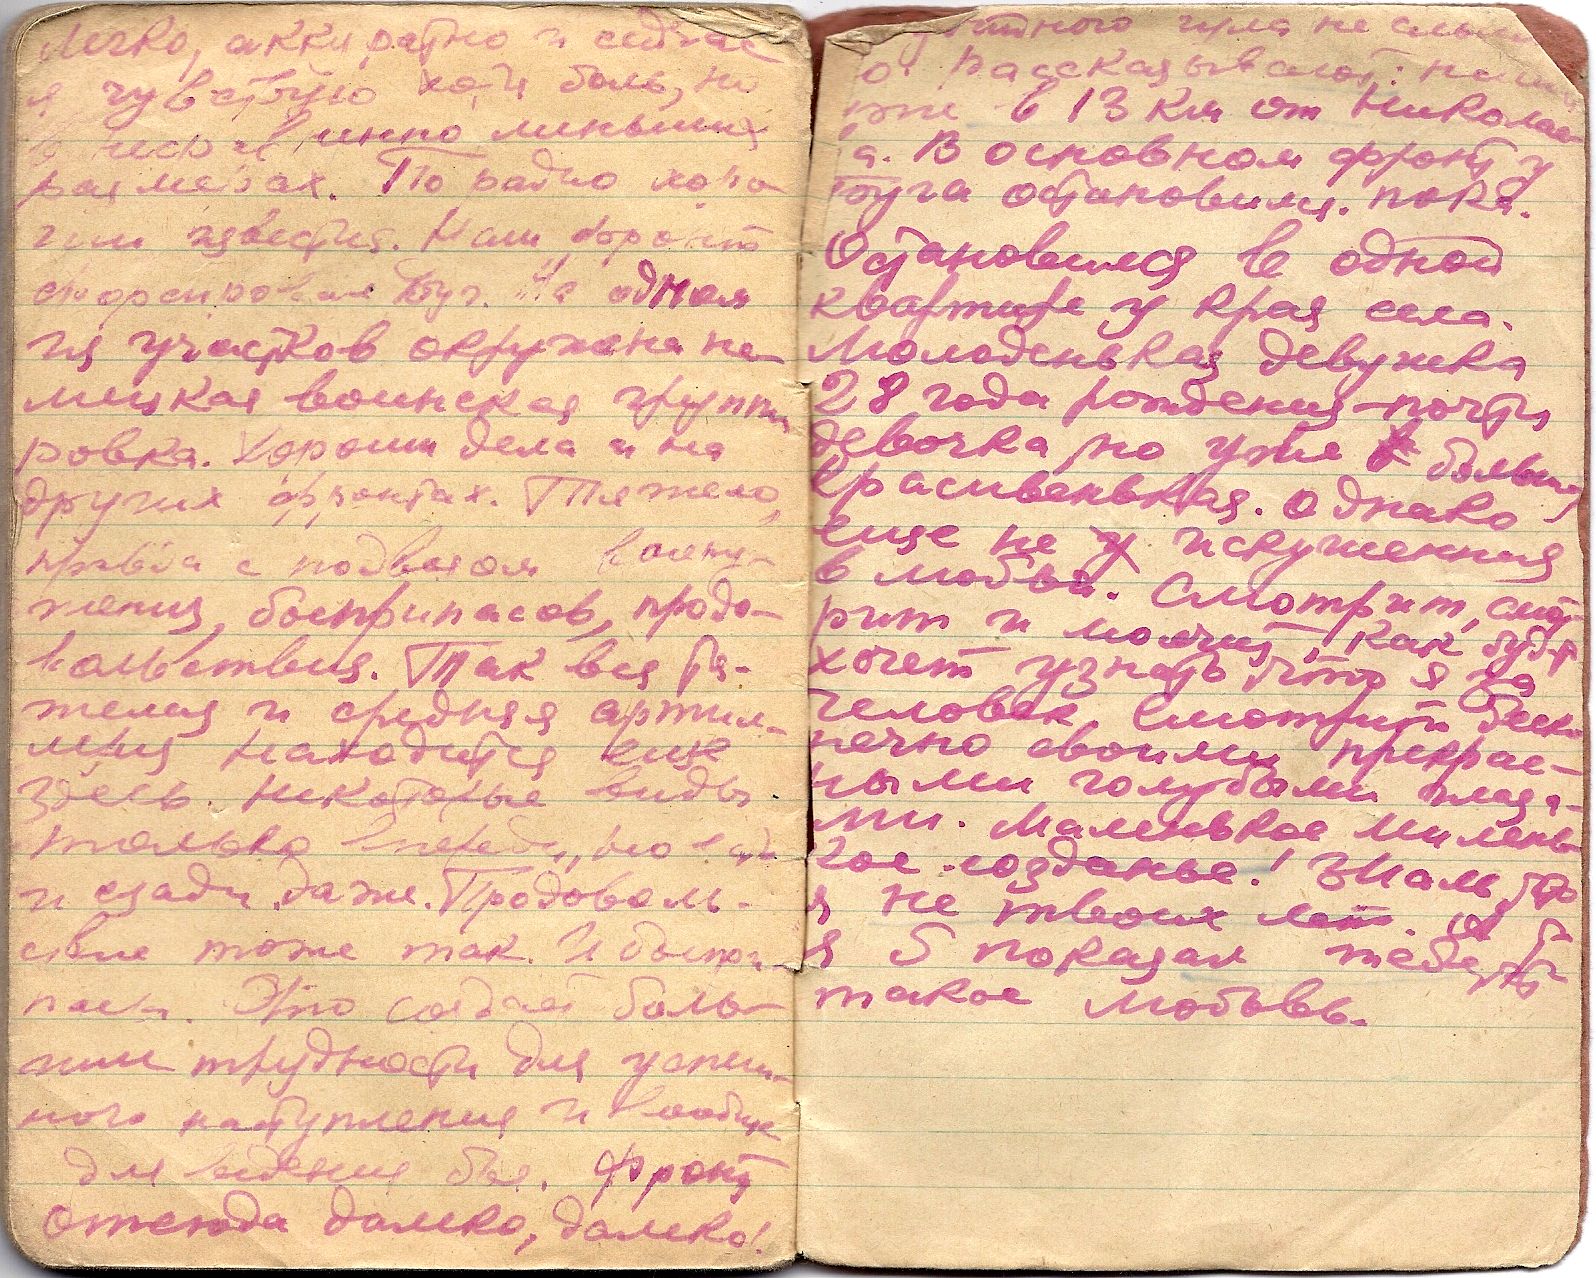 легко, аккуратно и сейчас
я чувствую хоть боль, но
в несравненно меньших
размерах. По радио хоро-
шие известия. Наш фронт
форсировал Буг. На одном
из участков окружена не-
мецкая воинская группи
ровка. Хороши дела и на
других фронтах. Тяжело,
правда с подвозом воору-
жения, боеприпасов, продо-
вольствия. Так вся тя-
желая и средняя артил-
лерия находится еще
здесь. Некоторые виды
только впереди, но
и сзади даже. Продоволь-
ствие тоже так. И боепри-
пасы. Это создает боль-
шие трудности для успеш-
ного наступления и вообще
для ведения боя. Фронт
отсюда далеко, далеко!
гула не слыш
о. Рассказывают: наши
уже в 13 км от Николае-
ва. В основном фронт у
Буга остановился. пока.
Остановился в одной
квартире у края села.
Молоденькая девушка
28 года рождения – почти
девочка, но уже большая,
красивенькая. Однако
еще не искушенная
в любви. Смотрит, смот
рит и молчит, как будто
хочет узнать что я за
человек. Смотрит беско
нечно своими прекрас-
ными голубыми глаза-
ми. Маленькое милень-
кое созданье! Жаль что
я не твоих лет. А то б
я б показал тебе что
такое любовь.